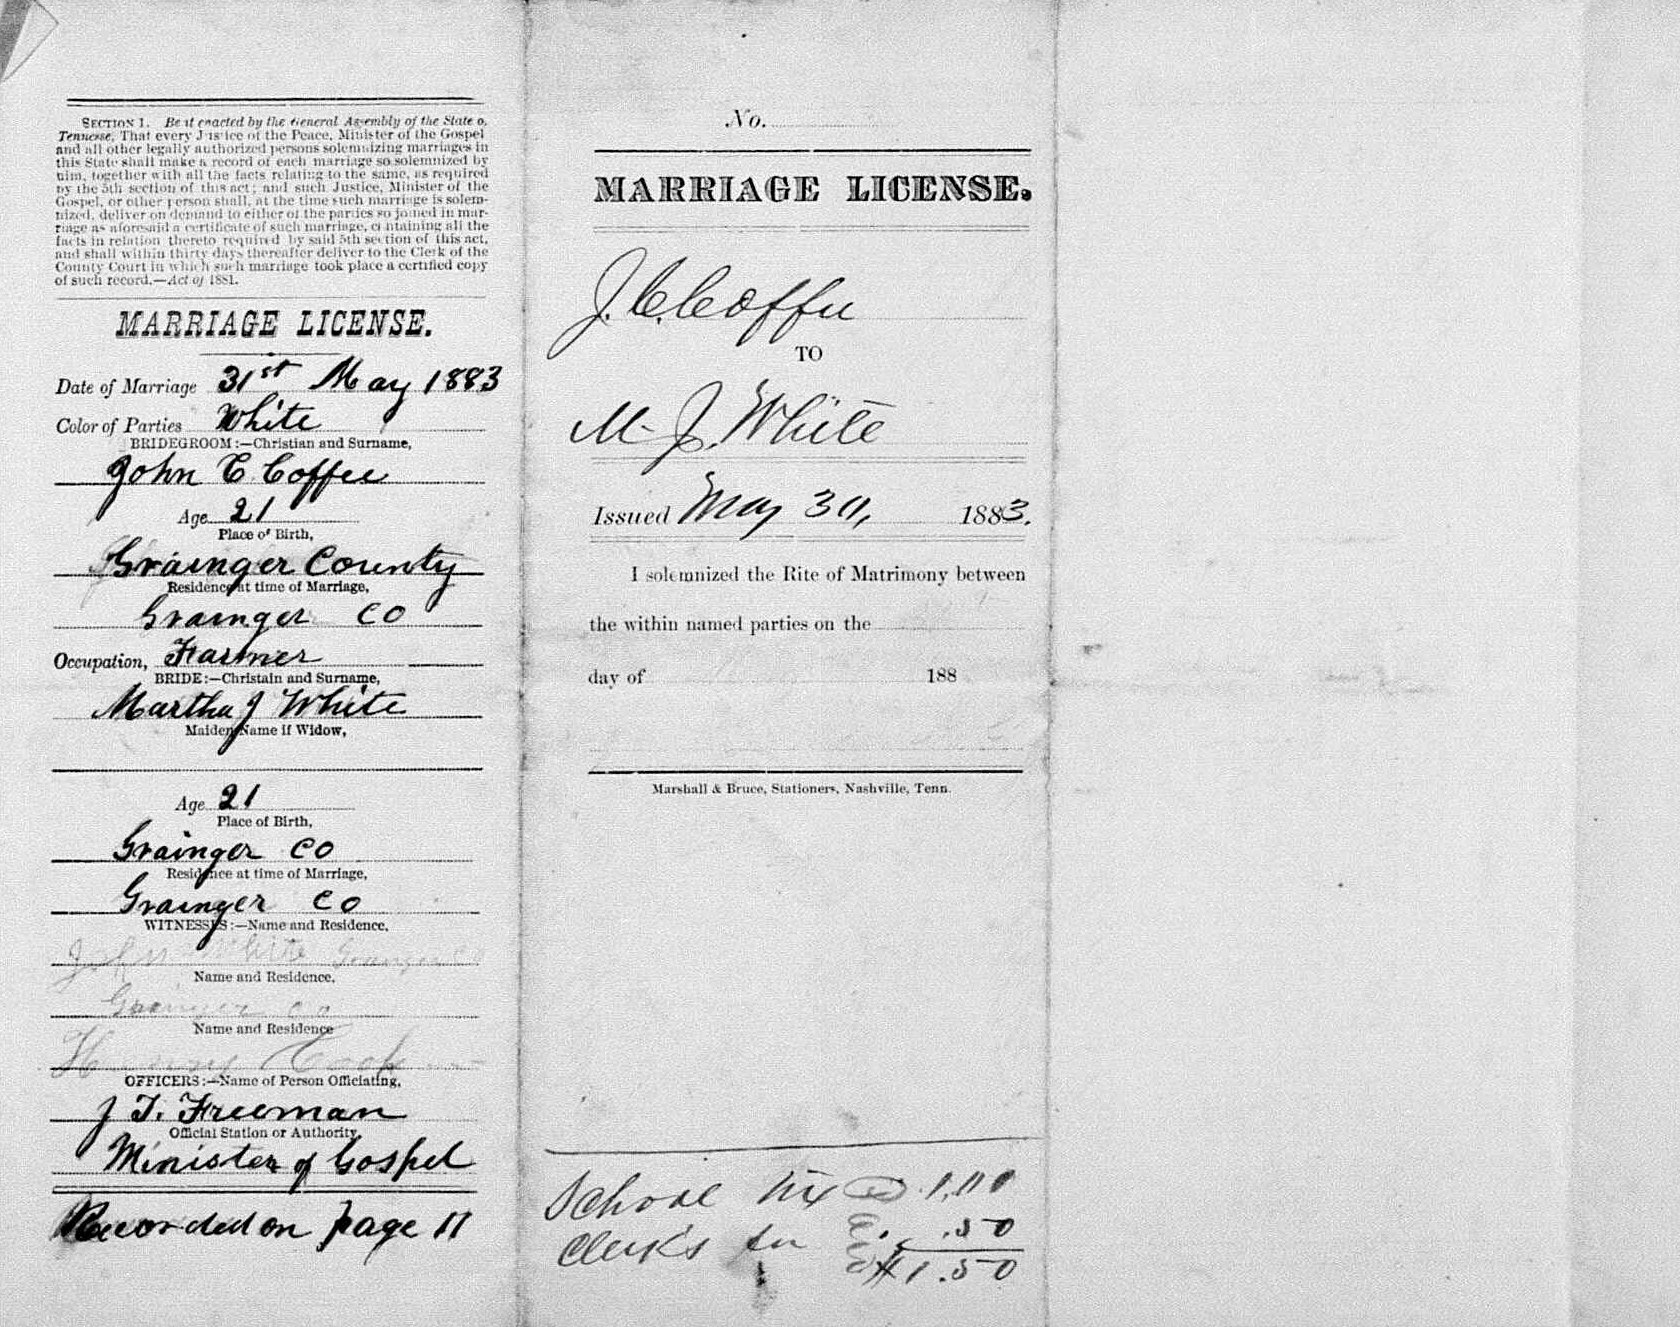 SECTION 1. Be it enacted by the General Assembly of the State o.
Tennesse, That every Justice of the Peace, Minister of the Gospel
and all other legally authorized persons solemnizing marriages in
this State shall make a record of each marriage so solemnized by
him, together with all the facts relating to the same, as required
by the 5th section of this act; and such Justice, Minister of the
Gospel, or other person shall, at the time such marriage is solem-
nized, deliver on demand to either of the parties so joined in mar-
riage as aforesaid a certificate of such marriage, containing all the
facts in relation thereto required by said 5th section of this act,
and shall within thirty days thereafter deliver to the Clerk of the
County Court in which such marriage took place a certified copy
of such record.—Act of 1881.
MARRIAGE LICENSE.
Date of Marriage 31st May 1883
Color of Parties White
BRIDEGROOM:—Christian and Surname,
John C Coffee
Age 21
Place of Birth,
Grainger County
Residence at time of Marriage,
Grainger Co
Occupation, Farmer
BRIDE:—Christain and Surname,
Martha J White
Maiden Name if Widow,
Age 21
Place of Birth,
Grainger Co
Residence at time of Marriage,
Grainger Co
WITNESSES:—Name and Residence,
John White Grainger Co
Name and Residence,
Grainger Co
Name and Residence
Henry Cook
OFFICERS:—Name of Person Officiating,
J T. Freeman
Official Station or Authority,
Minister of Gospel
Recorded on page 11
No.
MARRIAGE LICENSE.
J. C. Coffee
TO
M. J. White
Issued May 30, 1883.
I solemnized the Rite of Matrimony between
the within named parties on the
day of 188
Marshall & Bruce, Stationers, Nashville, Tenn.
School tax 1.00
Clerk's fee .50
$1.50